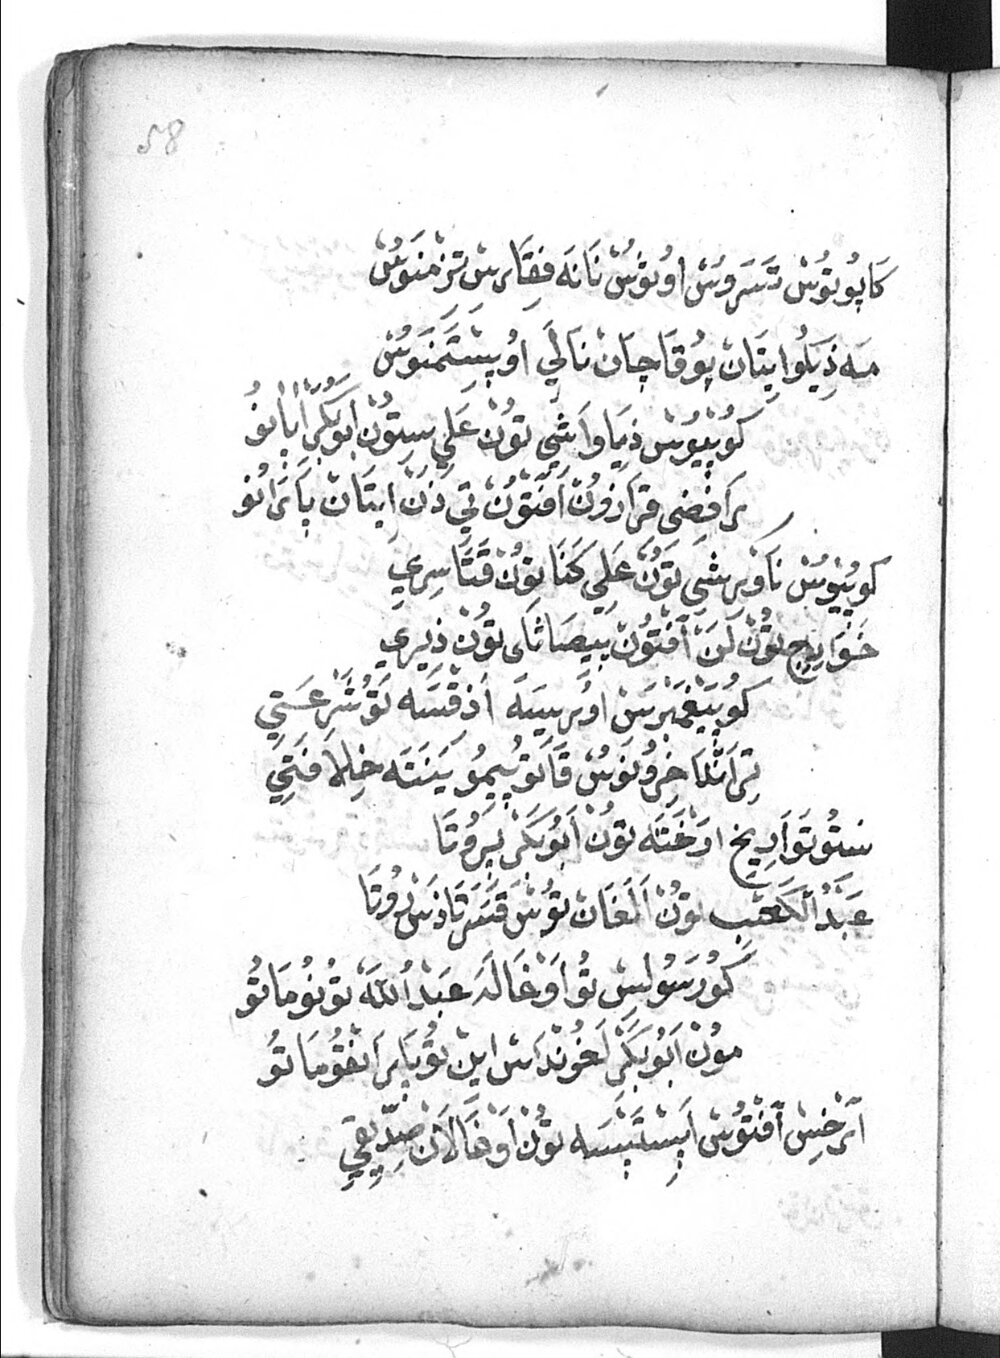 58
كَاپُوتُوسْ تَسَرُوسْ اوُتُوسْ نَانَه فِقَارِسْ تِرْمَنَوُسْ
مَه ذِيَلُوا يِتَانْ پُوقَاچَانْ نَالِي اوُپِسْتَمَنَوُسْ
كُوپْيُوسْ ذِيَاوَاشِي تُونْ عَلِي سِتُونْ اَبُوبَكْرِ اَپَانُو
رَافِضِى قَرَاذوُنْ اَفْتُونْ تِي ذَنْ اِيتَانْ پَارَانُو
كُوپِيُوسْ نَاوْرِشِي تُونْ عَلِي كَنَا تُونْ قَتَاسِرِي
خَوَارِج تُونْ لَنْ اَفْتُونْ بِيصَا ثَاى تُونْ ذِيرِي
كُوپَيْغَمْبَرَسْ اوُرِيسَه اَذِقْسَه تُوشَرِعَتِي
تِرِانْدَا خِرُونَوُسْ قَاتُوپِيمُو يَنَتَه خِلَافَتِي
سْتُوتَوَارِيخْ اوَخْتَه تُونْ اَبُوبَكْرِ پِرُوتَا
عَبْدُ الْكَعْبِ تُونْ اَلَغَانْ تُوسْ قَسَرْتَاذَسْ رُوتَا
كُورَسُولِسْ تُو اَوْغَالَه عَبْدُ اللَّه تُونُومَاتُو
مُونْ اَبُوبَكْرِ لَغُونْدَاسْ اِينْ تُوپَارَانْقُومَاتُو
اَرْخِسْ اَفْتُوسْ اَپِسْتَپْسَه تُونْ اَوْغَالَانْ صِدِّيقِي